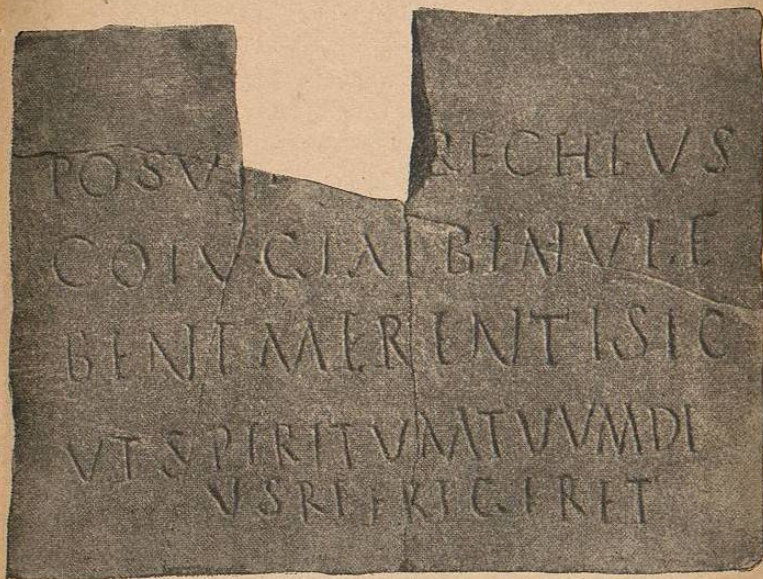 POSVIT RECHIVS
COIVGI ALBINVLE
BENEMERENTI SIC
VT SPERITVM TVVM DE
VS REFRIGERET